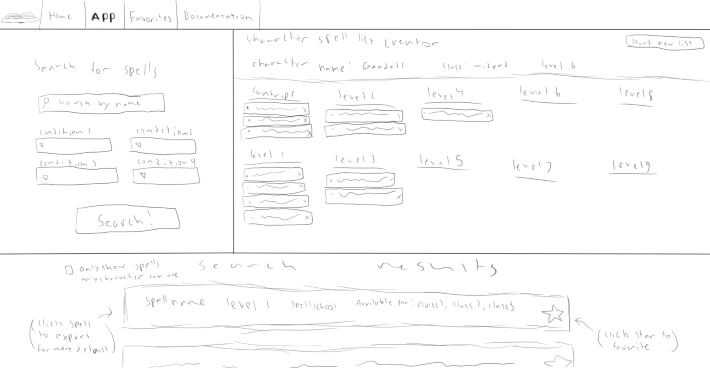 Home APP Favorites Documentation
Search for spells
search by name
condition 1 condition2
condition 3 condition 4
Search!
character spell list creator
Start new list
character name: Gandalf class: wizard level 6
Cantrips level 2 level 4 level 6 level 8
level 1 level 3 level 5 level 7 level 9
only show spells
my character can use
Search results
Spell name level 1 Spell school Available for: class1, class 2, class3
(click spell
to expand
for more details)
(click star to
favorite